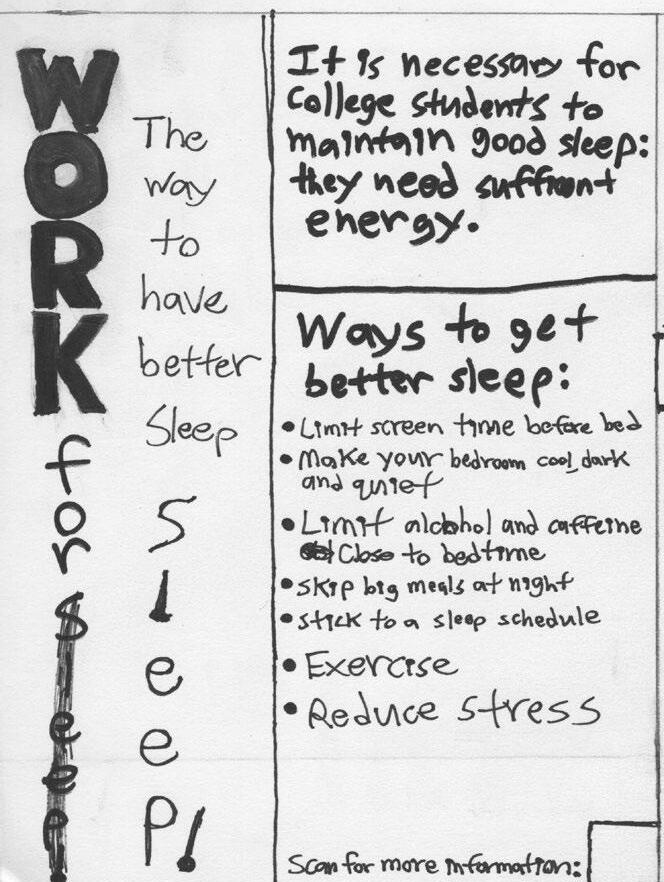 WORK
for
sleep!
The
way
to
have
better
Sleep
Sleep!
It is necessary for
College students to
maintain good sleep:
they need suffient
energy.
Ways to get
better sleep:
• Limit screen time before bed
• Make your bedroom cool, dark
and quiet
• Limit alcohol and caffeine
Close to bedtime
• skip big meals at night
• stick to a sleep schedule
• Exercise
• Reduce stress
Scan for more information: